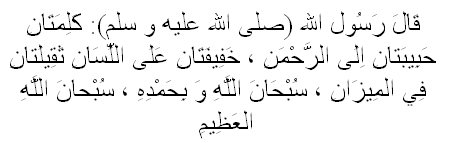 قالَ رَسُول الله (صلى الله عليه و سلم): كلِمَتَان
حَبِيبَتَان اِلى الرَّحْمَن ، خَفِيفَتَان عَلى اللِّسَان ثَقِيلتَان
فِي المِيزَان ، سُبْحَانَ اللَّهِ وَ بِحَمْدِهِ ، سُبْحانَ اللَّهِ
العَظِيمِ